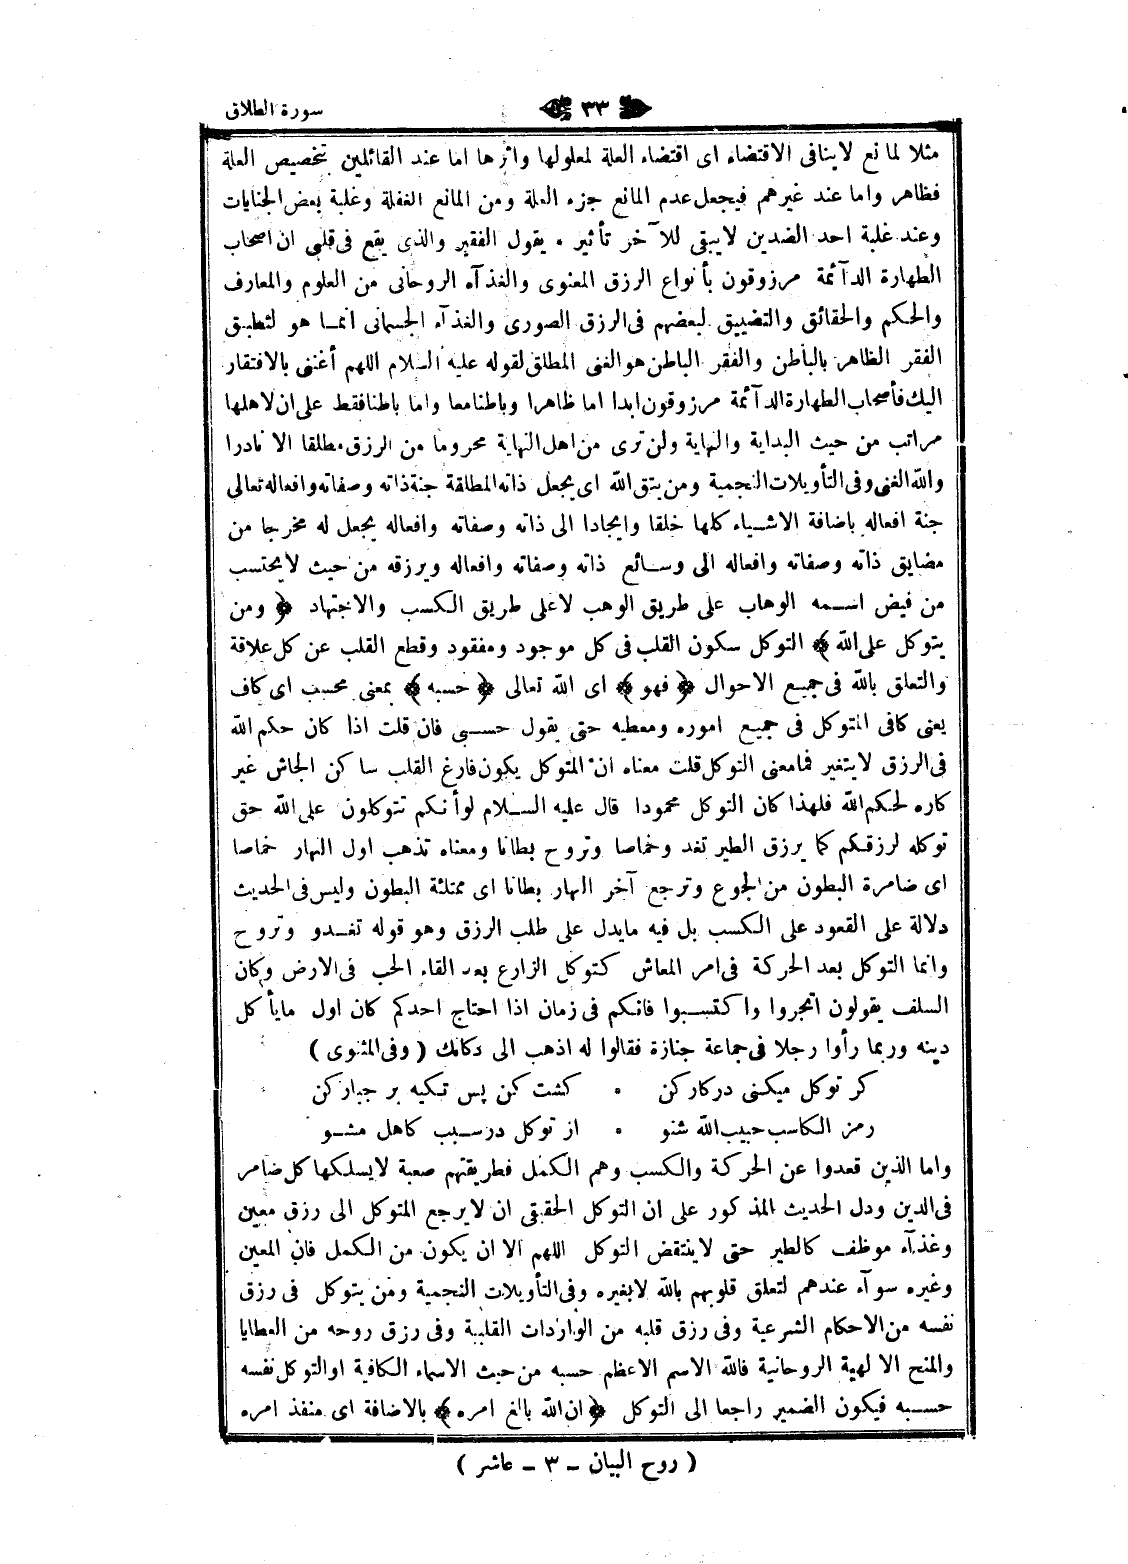 سورة الطلاق
٣٣
مثلا لمانع لاينافى الاقتضاء اى اقتضاء العلة لمعلولها واثرها اما عند القائلين بتخصيص العلة
فظاهر واما عند غيرهم فيجعل عدم المانع جزء العلة ومن المانع الغفلة وغلبة بعض الجنايات
وعند غلبة احد الضدين لايبقى للآخر تأثير • يقول الفقير والذى يقع فى قلبى ان اصحاب
الطهارة الدآئمة مرزوقون بأنواع الرزق المعنوى والغذآء الروحانى من العلوم والمعارف
والحكم والحقائق والتضييق لبعضهم فى الرزق الصورى والغذآء الجسمانى انمـا هو لتطبيق
الفقر الظاهر بالباطن والفقر الباطن هو الغنى المطلق لقوله عليه السلام اللهم أغننى بالافتقار
اليك فأصحاب الطهارة الدآئمة مرزوقون ابدا اما ظاهرا وباطنا معا واما باطنا فقط على ان لاهلها
مراتب من حيث البداية والنهاية ولن ترى من اهل النهاية محروما من الرزق مطلقا الا نادرا
والله الغنى وفى التأويلات النجمية ومن يتق الله اى يجعل ذاته المطلقة جنة ذاته وصفاته وافعاله تعالى
جنة افعاله باضافة الاشـياء كلها خلقا وايجادا الى ذاته وصفاته وافعاله يجعل له مخرجا من
مضايق ذاته وصفاته وافعاله الى وسـائع ذاته وصفاته وافعاله ويرزقه من حيث لايحتسب
من فيض اسـمه الوهاب على طريق الوهب لاعلى طريق الكسب والاجتهاد ﴿ ومن
يتوكل على الله ﴾ التوكل سكون القلب فى كل موجود ومفقود وقطع القلب عن كل علاقة
والتعلق بالله فى جميع الاحوال ﴿ فهو ﴾ اى الله تعالى ﴿ حسبه ﴾ بمعنى محسب اى كاف
يعنى كافى المتوكل فى جميع اموره ومعطيه حتى يقول حسـبى فان قلت اذا كان حكم الله
فى الرزق لايتغير فمامعنى التوكل قلت معناه ان المتوكل يكون فارغ القلب ساكن الجاش غير
كاره لحكم الله فلهذا كان التوكل محمودا قال عليه السـلام لوأنكم تتوكلون على الله حق
توكله لرزقكم كما يرزق الطير تغد وخماصا وتروح بطانا ومعناه تذهب اول النهار خماصا
اى ضامرة البطون من الجوع وترجع آخر النهار بطانا اى ممتلئة البطون وليس فى الحديث
دلالة على القعود على الكسب بل فيه مايدل على طلب الرزق وهو قوله تغـدو وتروح
وانما التوكل بعد الحركة فى امر المعاش كتوكل الزارع بعد القاء الحب فى الارض وكان
السلف يقولون اتجروا واكتسـبوا فانكم فى زمان اذا احتاج احدكم كان اول مايأكل
دينه وربما رأوا رجلا فى جماعة جنازة فقالوا له اذهب الى دكانك ( وفى المثنوى )
كر توكل ميكنى دركار كن • كشت كن پس تكيه بر جبار كن
رمز الكاسب حبيب الله شنو • از توكل درسـبب كاهل مشـو
واما الذين قعدوا عن الحركة والكسب وهم الكمل فطريقتهم صعبة لايسلكها كل ضامر
فى الدين ودل الحديث المذكور على ان التوكل الحقيقى ان لايرجع المتوكل الى رزق معين
وغذآء موظف كالطير حتى لاينتقض التوكل اللهم الا ان يكون من الكمل فان المعين
وغيره سوآء عندهم لتعلق قلوبهم بالله لابغيره وفى التأويلات النجمية ومن يتوكل فى رزق
نفسه من الاحكام الشرعية وفى رزق قلبه من الواردات القلبية وفى رزق روحه من العطايا
والمنح الالهية الروحانية فالله الاسم الاعظم حسبه من حيث الاسماء الكافية اوالتوكل نفسه
حسـبه فيكون الضمير راجعا الى التوكل ﴿ ان الله بالغ امره ﴾ بالاضافة اى منفذ امره
( روح البيان – ٣ – عاشر )